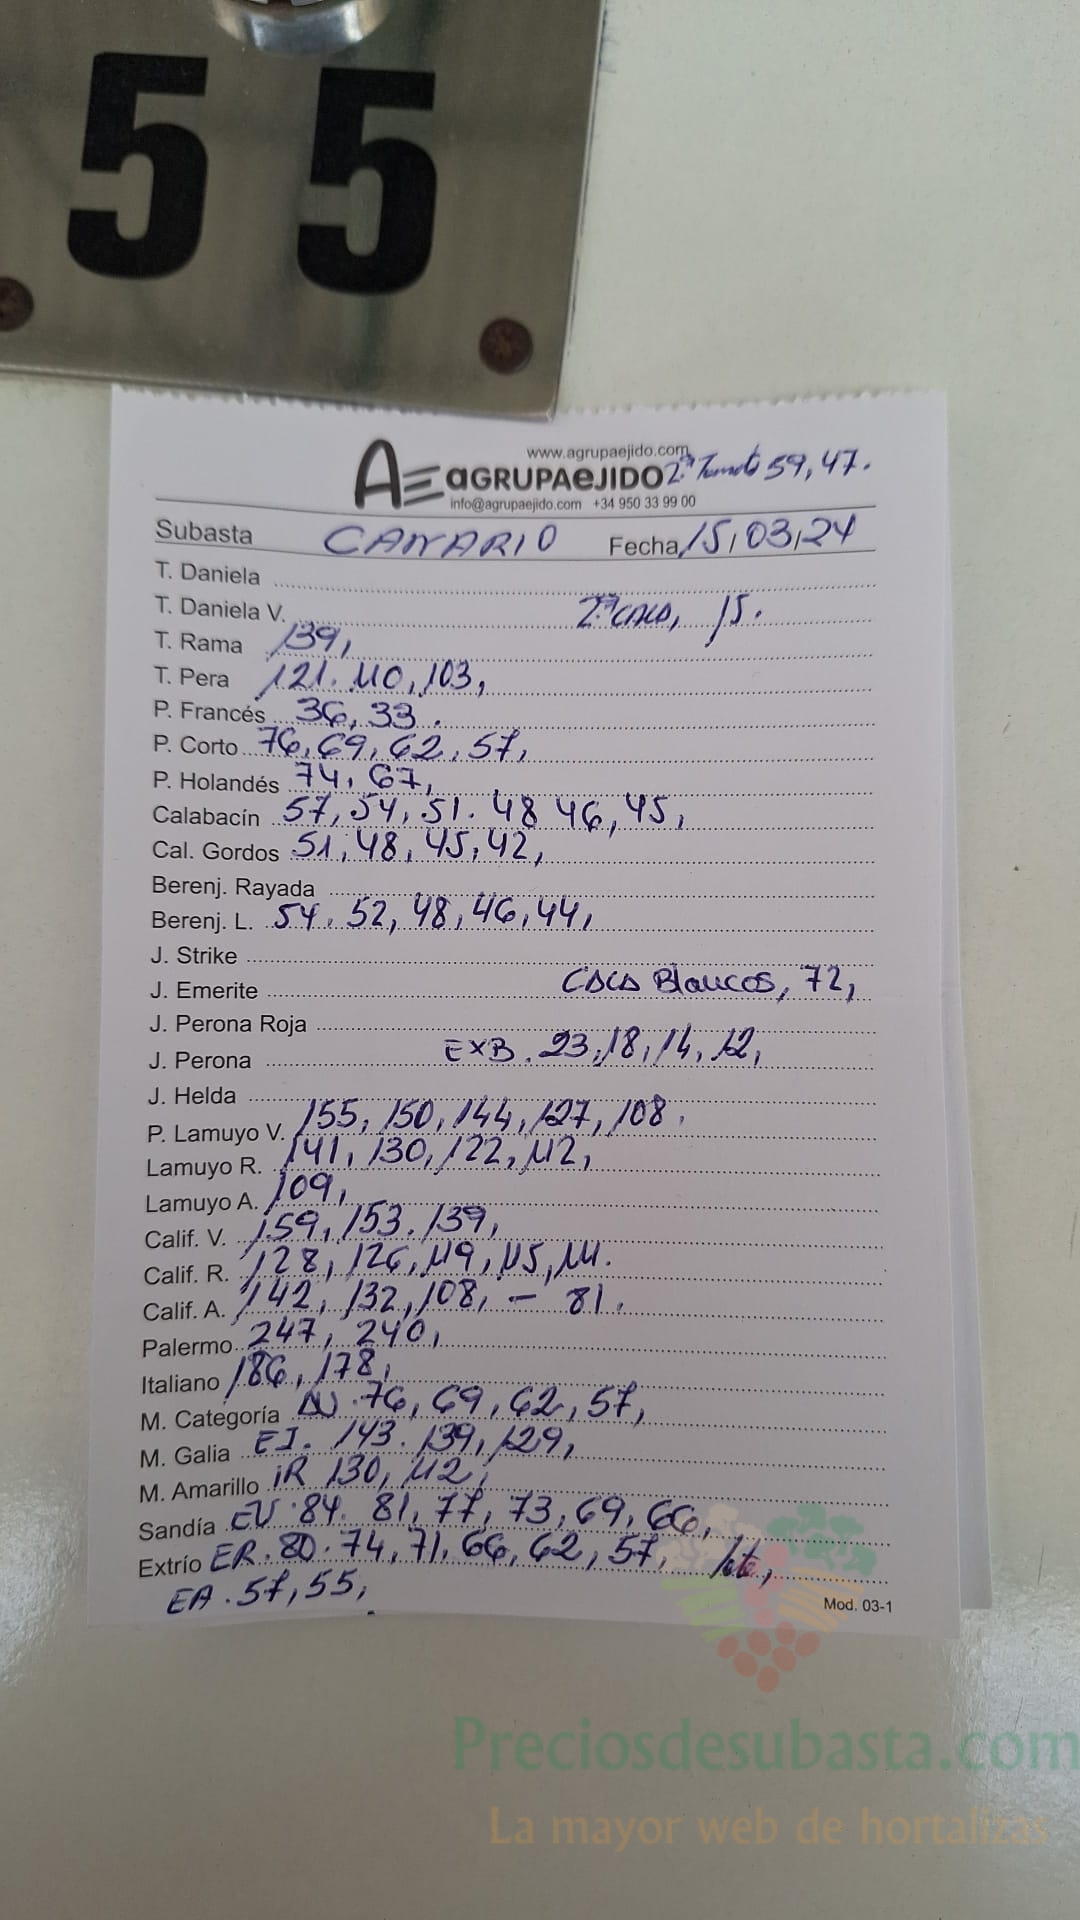 55
www.agrupaejido.com
AE aGRUPAeJIDO 2ª Tomate 59, 47.
info@agrupaejido.com +34 950 33 99 00
Subasta CANARIO Fecha 15/03/24
T. Daniela
T. Daniela V. 2ª CALA, 15.
T. Rama 139,
T. Pera 121. 110, 103,
P. Francés 36, 33.
P. Corto 76, 69, 62, 57,
P. Holandés 74, 67,
Calabacín 57, 54, 51. 48 46, 45,
Cal. Gordos 51, 48, 45, 42,
Berenj. Rayada
Berenj. L. 54. 52, 48, 46, 44,
J. Strike
J. Emerite Blancos, 72,
J. Perona Roja
J. Perona EXB. 23, 18, 14, 12,
J. Helda
P. Lamuyo V. 155, 150, 144, 127, 108.
Lamuyo R. 141, 130, 122, 112,
Lamuyo A. 109,
Calif. V. 159, 153. 139,
Calif. R. 128, 126, 119, 115, 111.
Calif. A. 142, 132, 108, - 81.
Palermo 247, 240,
Italiano 186, 178,
M. Categoría 76, 69, 62, 57,
M. Galia EI. 143. 139, 129,
M. Amarillo iR 130, 112,
Sandía EV. 84. 81, 77, 73, 69, 66,
Extrío ER. 80. 74, 71, 66, 62, 57,
EA. 57, 55,
Mod. 03-1
Preciosdesubasta.com
La mayor web de hortalizas